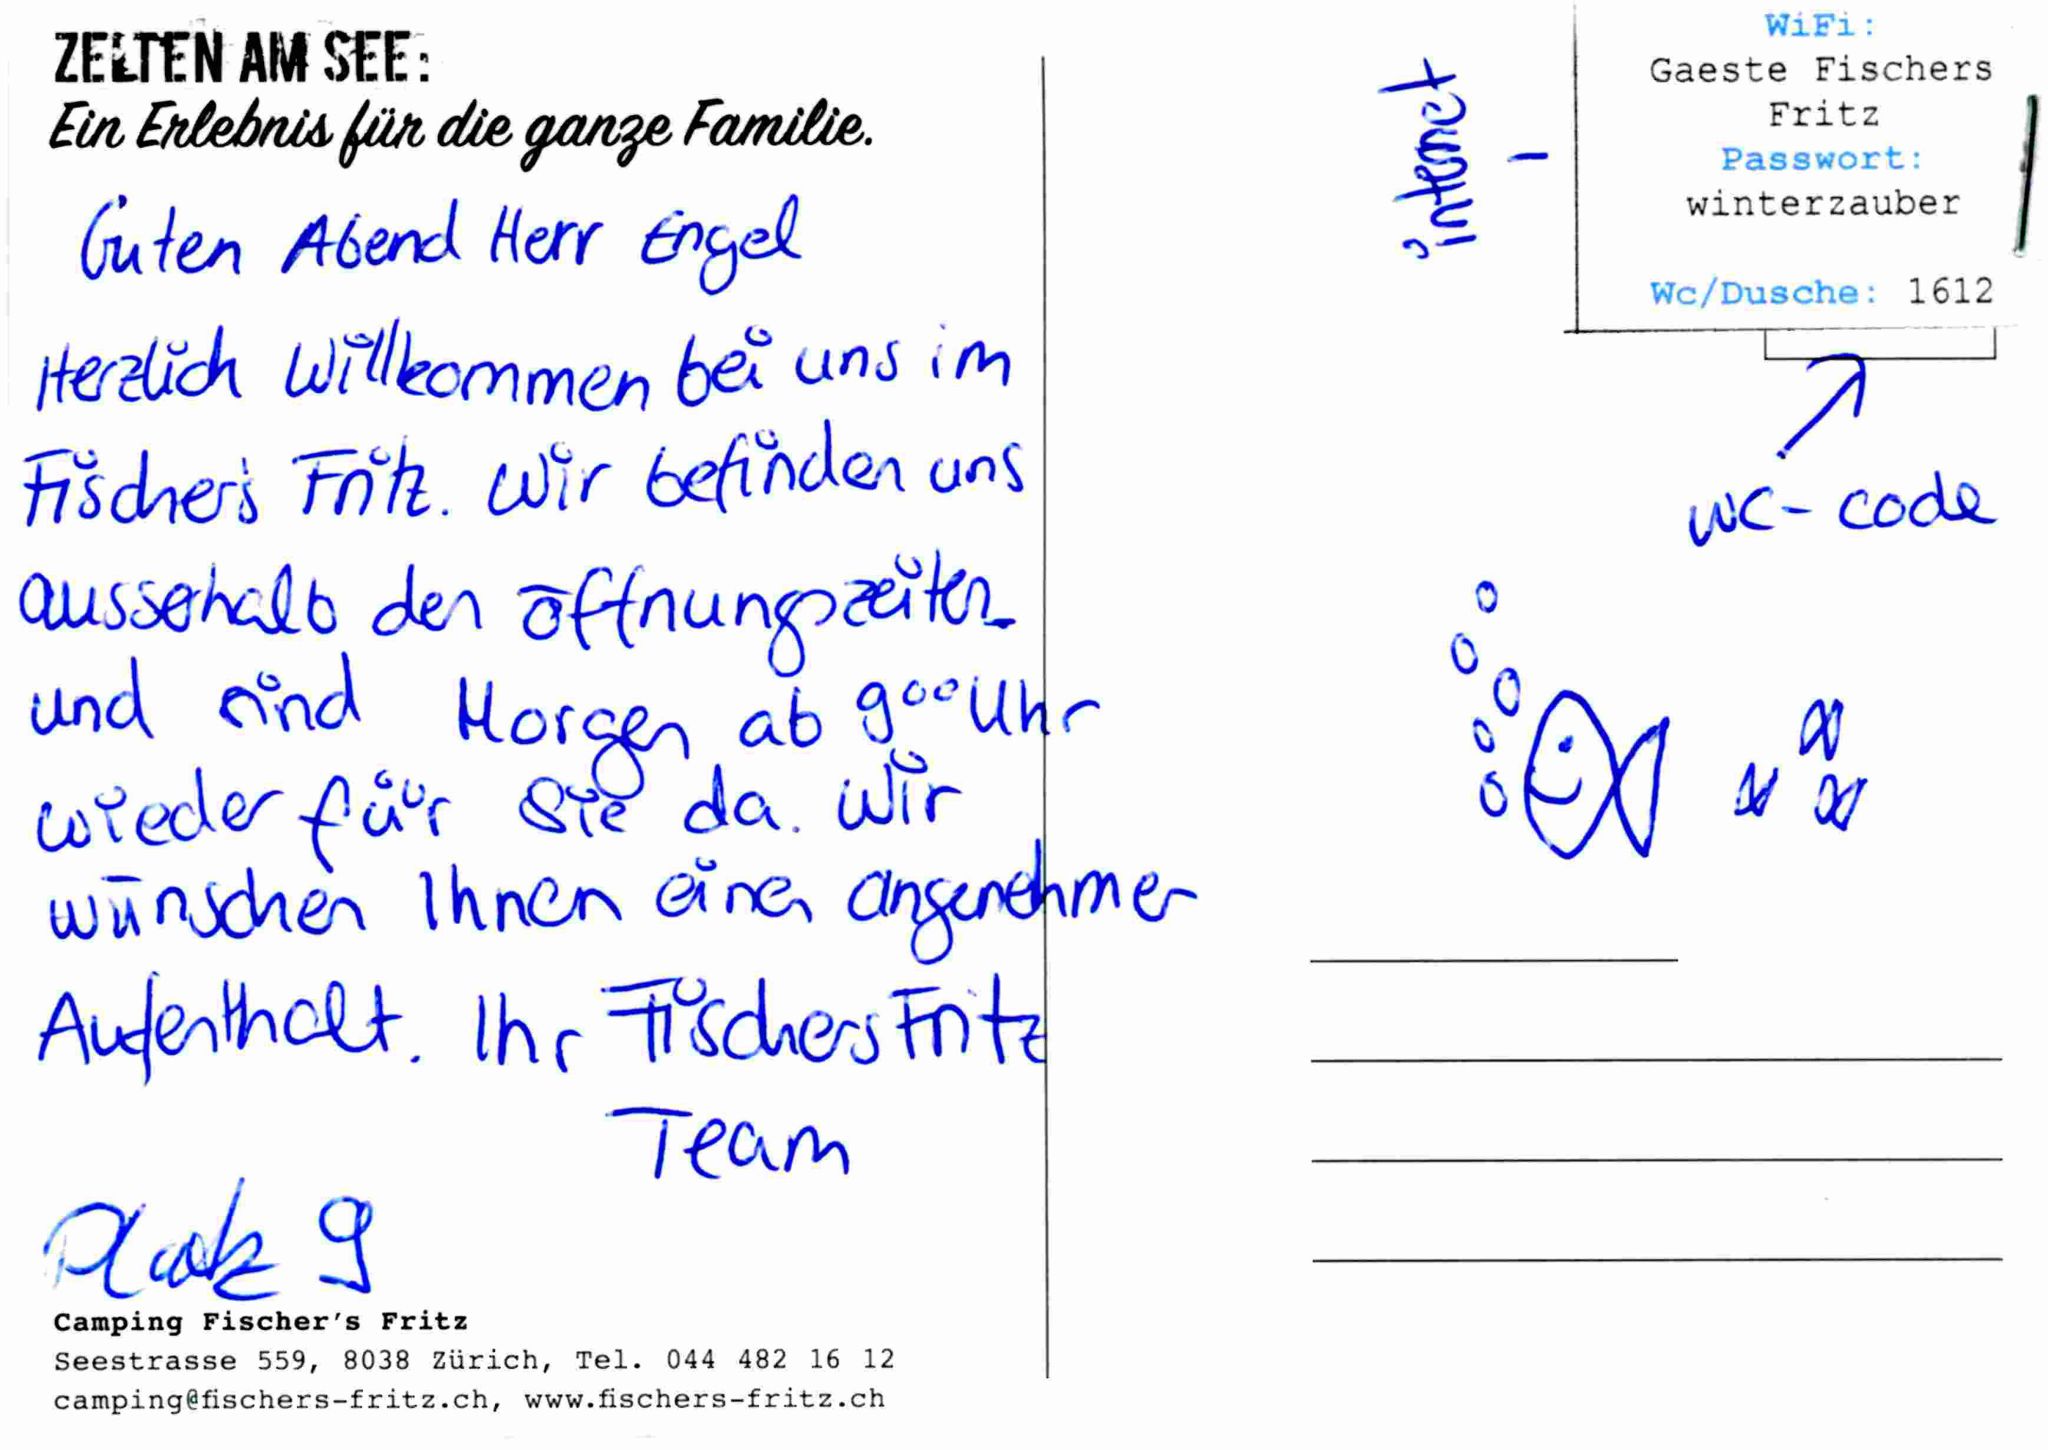 ZELTEN AM SEE:
Ein Erlebnis für die ganze Familie.
Guten Abend Herr Engel
Herzlich Willkommen bei uns im
Fischer's Fritz. Wir befinden uns
ausserhalb den öffnungszeiten
und sind Morgen ab 9⁰⁰ Uhr
wieder für Sie da. Wir
wünschen Ihnen einen angenehmen
Aufenthalt. Ihr Fischers Fritz
Team
Platz 9
Camping Fischer's Fritz
Seestrasse 559, 8038 Zürich, Tel. 044 482 16 12
camping@fischers-fritz.ch, www.fischers-fritz.ch
internet -
WiFi:
Gaeste Fischers
Fritz
Passwort:
winterzauber
Wc/Dusche: 1612
WC-code